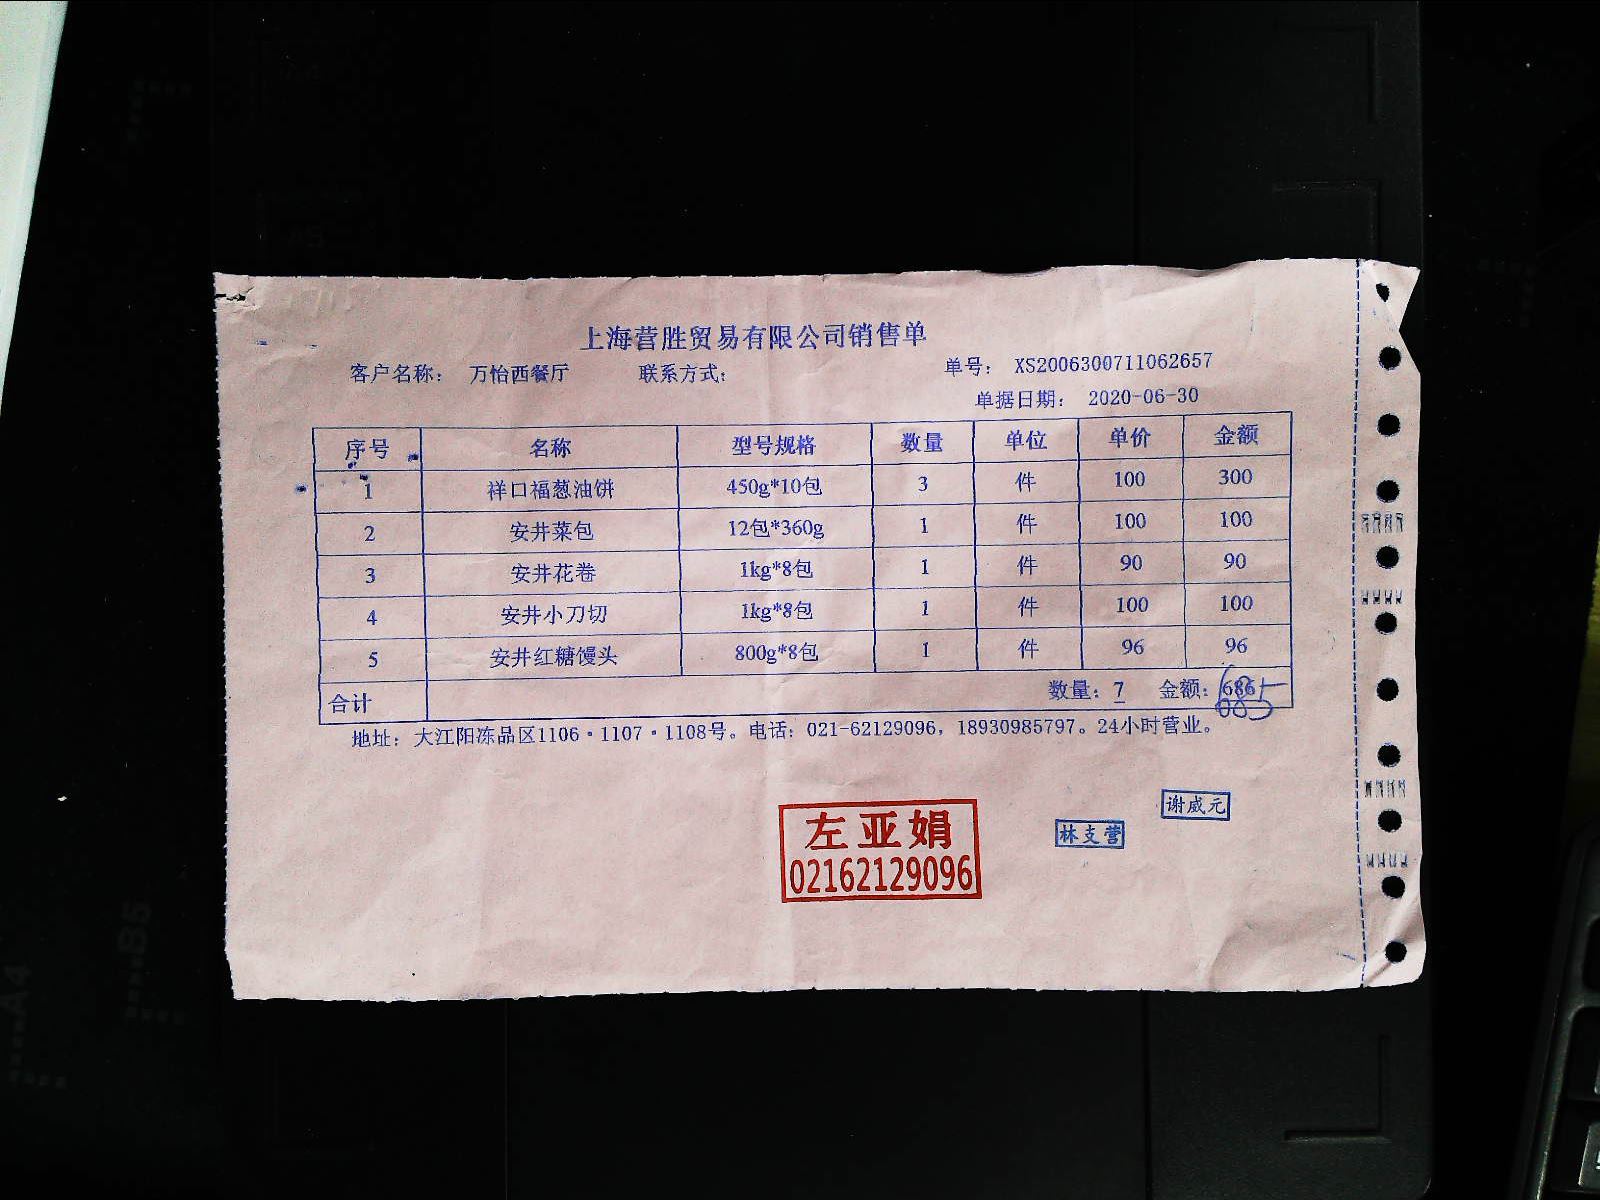 上海营胜贸易有限公司销售单
客户名称： 万怡西餐厅 联系方式： 单号： XS2006300711062657
单据日期： 2020-06-30
序号 名称 型号规格 数量 单位 单价 金额
1 祥口福葱油饼 450g*10包 3 件 100 300
2 安井菜包 12包*360g 1 件 100 100
3 安井花卷 1kg*8包 1 件 90 90
4 安井小刀切 1kg*8包 1 件 100 100
5 安井红糖馒头 800g*8包 1 件 96 96
合计 数量：7 金额：686
685
地址：大江阳冻品区1106·1107·1108号。电话：021-62129096，18930985797。24小时营业。
谢威元
林支营
左亚娟
02162129096
A4
B5